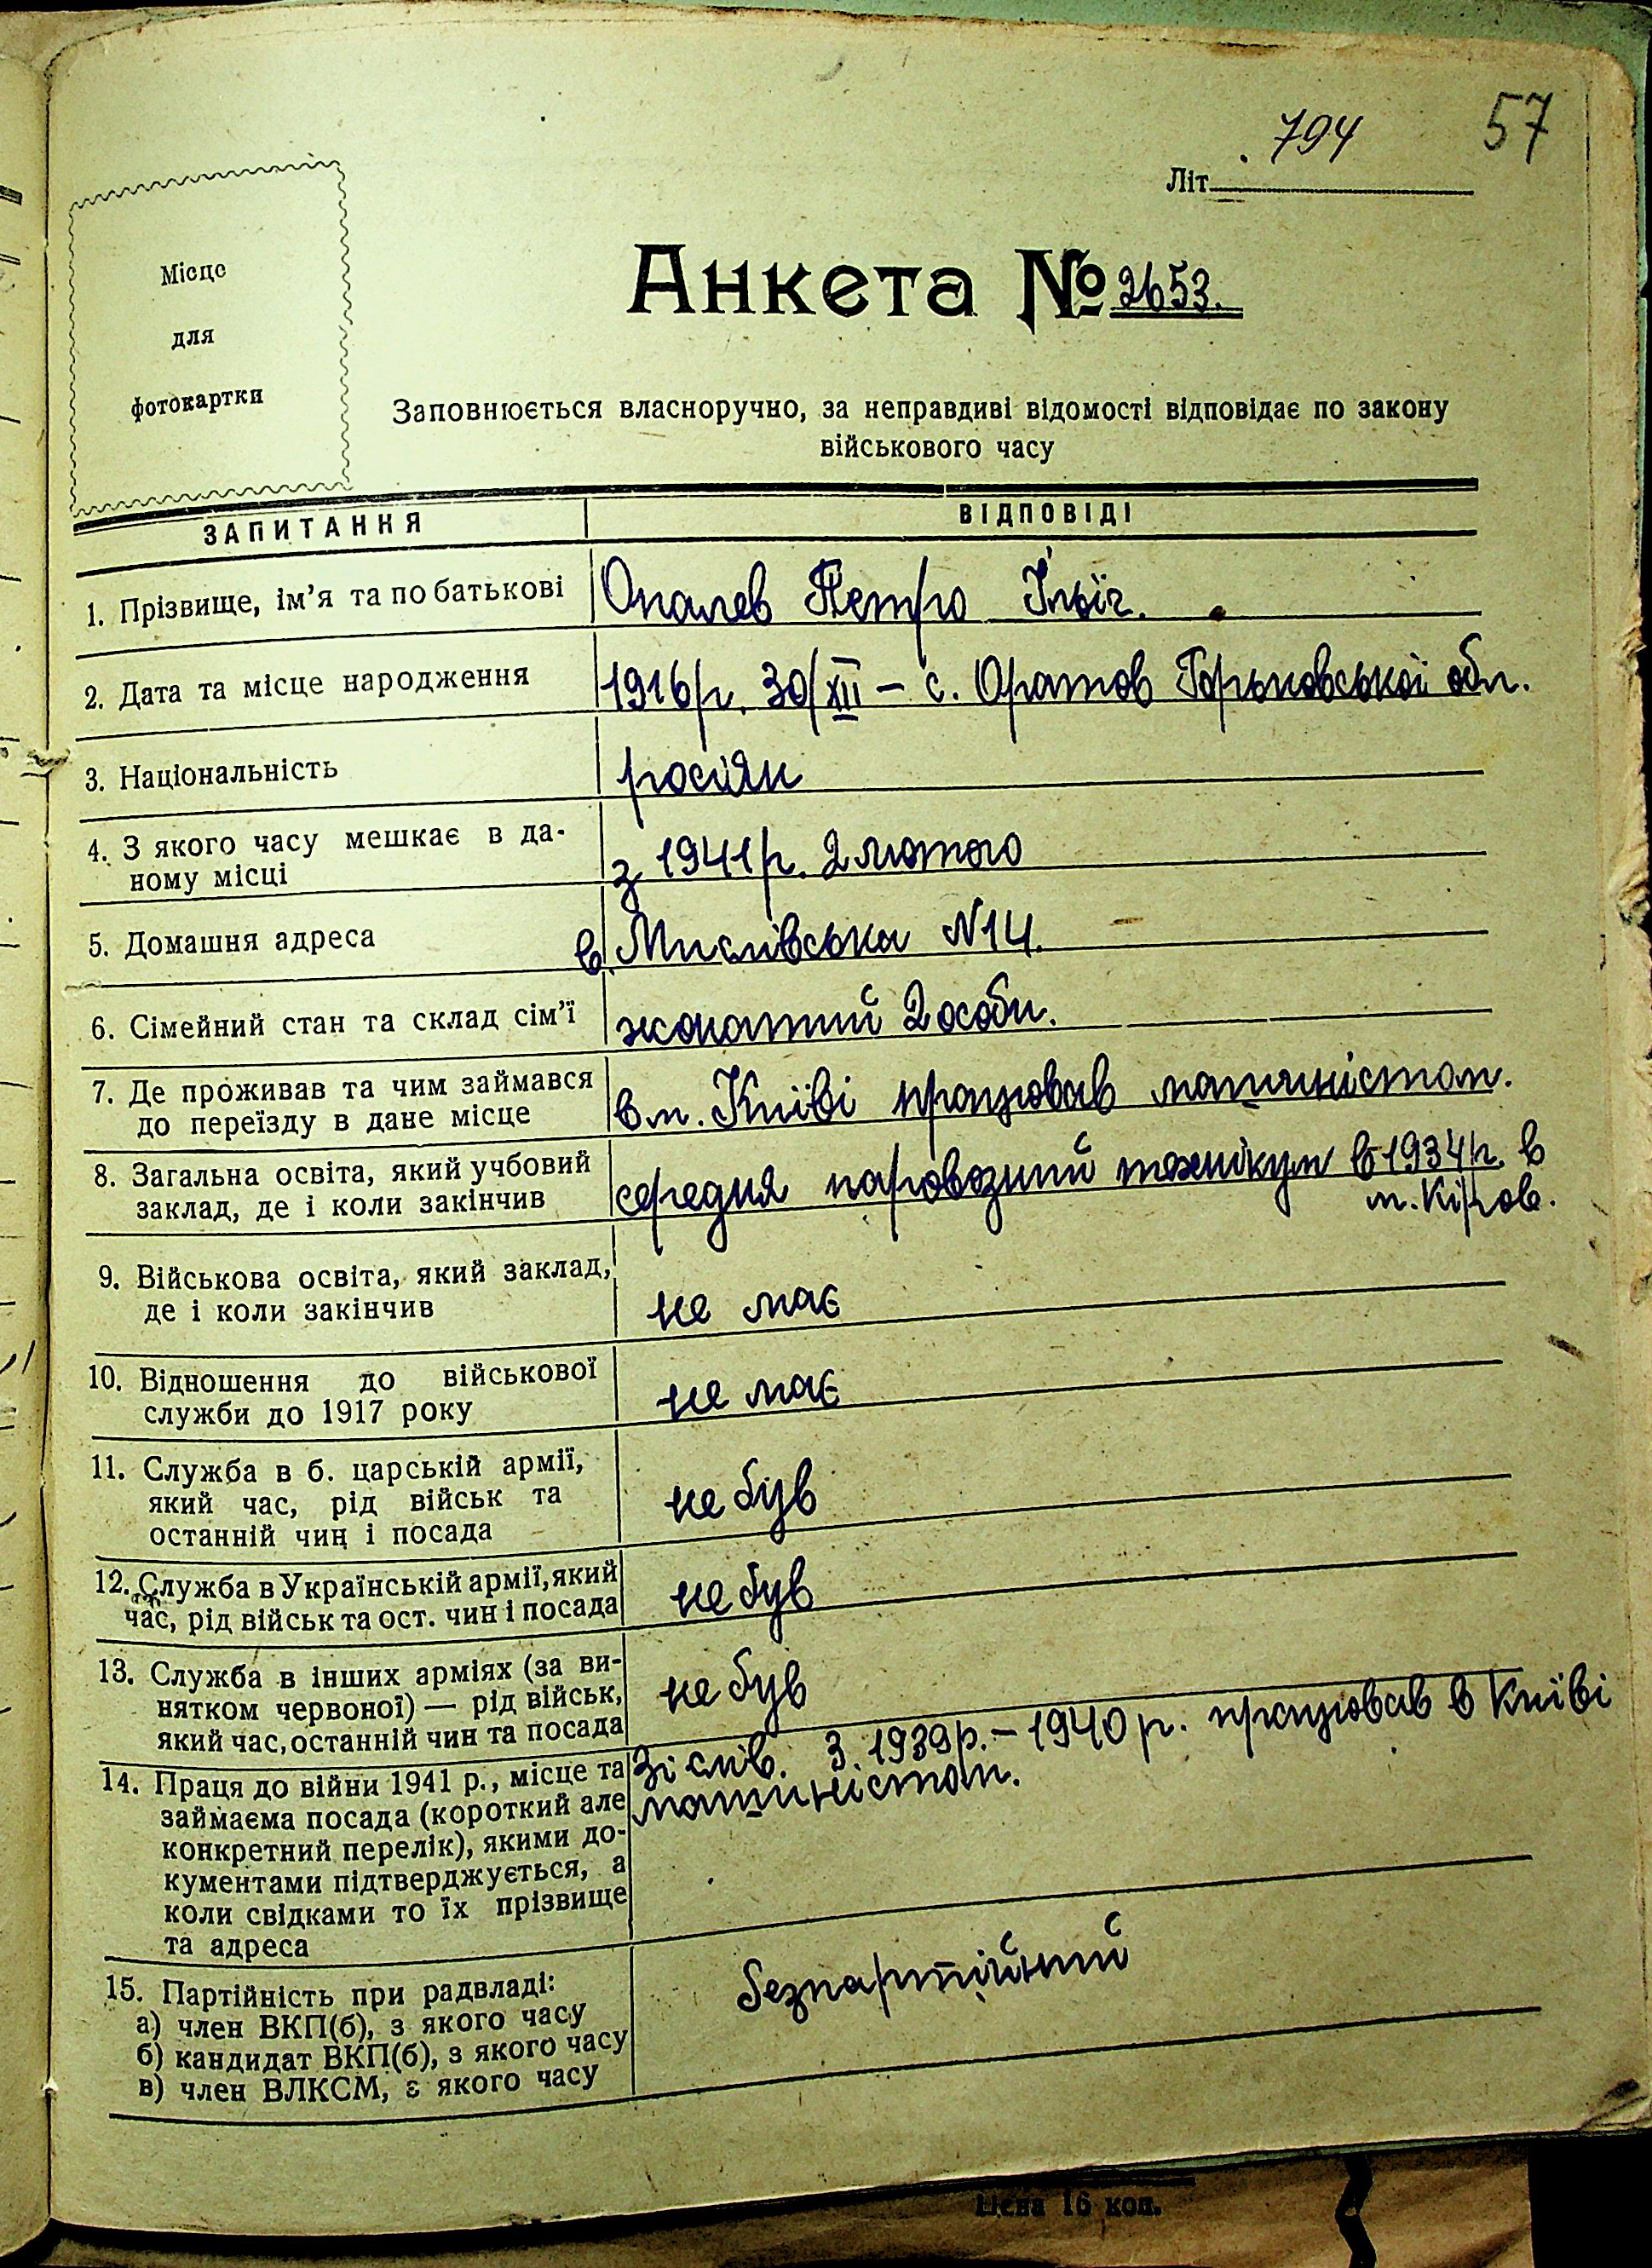 794
57
Літ.
Анкета № 2653.
Місце
для
фотокартки
Заповнюється власноручно, за неправдиві відомості відповідає по закону
військового часу
ЗАПИТАННЯ
ВІДПОВІДІ
1. Прізвище, ім'я та по батькові
Опалев Петро Ільїч.
2. Дата та місце народження
1916 р. 30/XII – с. Оратов Горьковської обл.
3. Національність
росіян
4. З якого часу мешкає в да-
ному місці
з 1941 р. 2 лютого
5. Домашня адреса
в. Мислівська N 14.
6. Сімейний стан та склад сім'ї
жонатий 2 особи.
7. Де проживав та чим займався
до переїзду в дане місце
в м. Київі працював машиністом.
8. Загальна освіта, який учбовий
заклад, де і коли закінчив
середня паровозний технікум в 1934 р. в
м. Кіров.
9. Військова освіта, який заклад,
де і коли закінчив
не має
10. Відношення до військової
служби до 1917 року
не має
11. Служба в б. царській армії,
який час, рід військ та
останній чин і посада
не був
12. Служба в Українській армії, який
час, рід військ та ост. чин і посада
не був
13. Служба в інших арміях (за ви-
нятком червоної) — рід військ,
який час, останній чин та посада
не був
14. Праця до війни 1941 р., місце та
займаєма посада (короткий але
конкретний перелік), якими до-
кументами підтверджується, а
коли свідками то їх прізвище
та адреса
Зі слів. З 1939 р. – 1940 р. працював в Київі
машиністом.
15. Партійність при радвладі:
а) член ВКП(б), з якого часу
б) кандидат ВКП(б), з якого часу
в) член ВЛКСМ, з якого часу
безпартійний
Цена 16 коп.